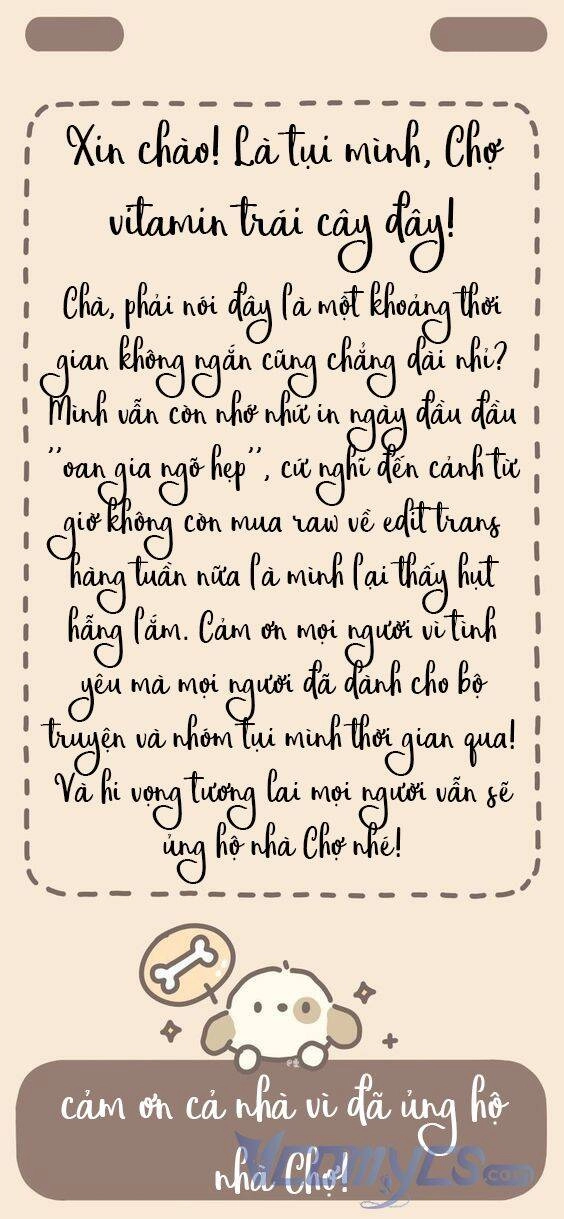 Xin chào! Là tụi mình, Chợ
vitamin trái cây đây!
Chà, phải nói đây là một khoảng thời
gian không ngắn cũng chẳng dài nhỉ?
Mình vẫn còn nhớ như in ngày đầu đầu
"oan gia ngõ hẹp", cứ nghĩ đến cảnh từ
giờ không còn mua raw về edit trans
hàng tuần nữa là mình lại thấy hụt
hẫng lắm. Cảm ơn mọi người vì tình
yêu mà mọi người đã dành cho bộ
truyện và nhóm tụi mình thời gian qua!
Và hi vọng tương lai mọi người vẫn sẽ
ủng hộ nhà Chợ nhé!
cảm ơn cả nhà vì đã ủng hộ
nhà Chợ!